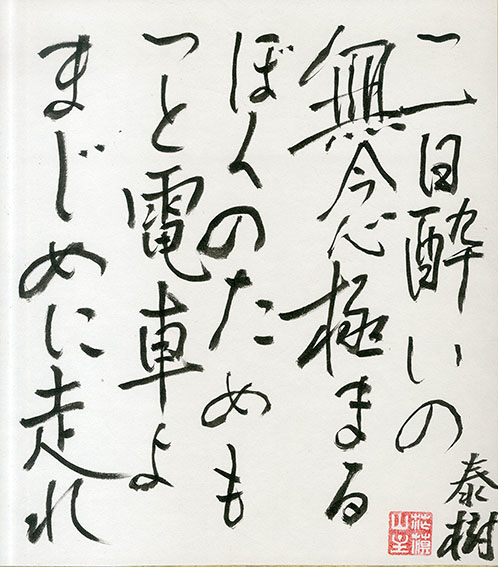 二日酔いの
無念極まる
ぼくのためも
っと電車よ
まじめに走れ
泰樹